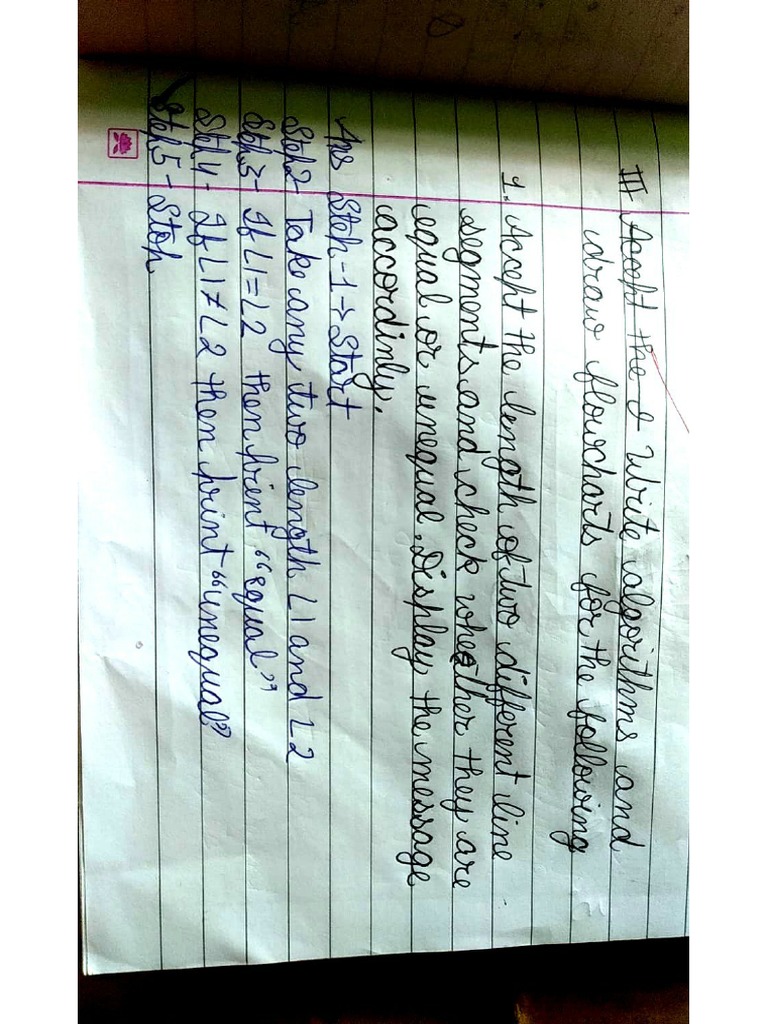 III Accept the & Write algorithms and
draw flowcharts for the following
1. Accept the length of two different line
segments and check whether they are
equal or unequal. Display the message
accordinly.
Ans Steh-1→Start
Steh2- Take any two length L1 and L2
Seh3- If L1=L2 then prient "equal"
Steh4- If L1≠L2 then print "unequal"
Steh5- Stoh